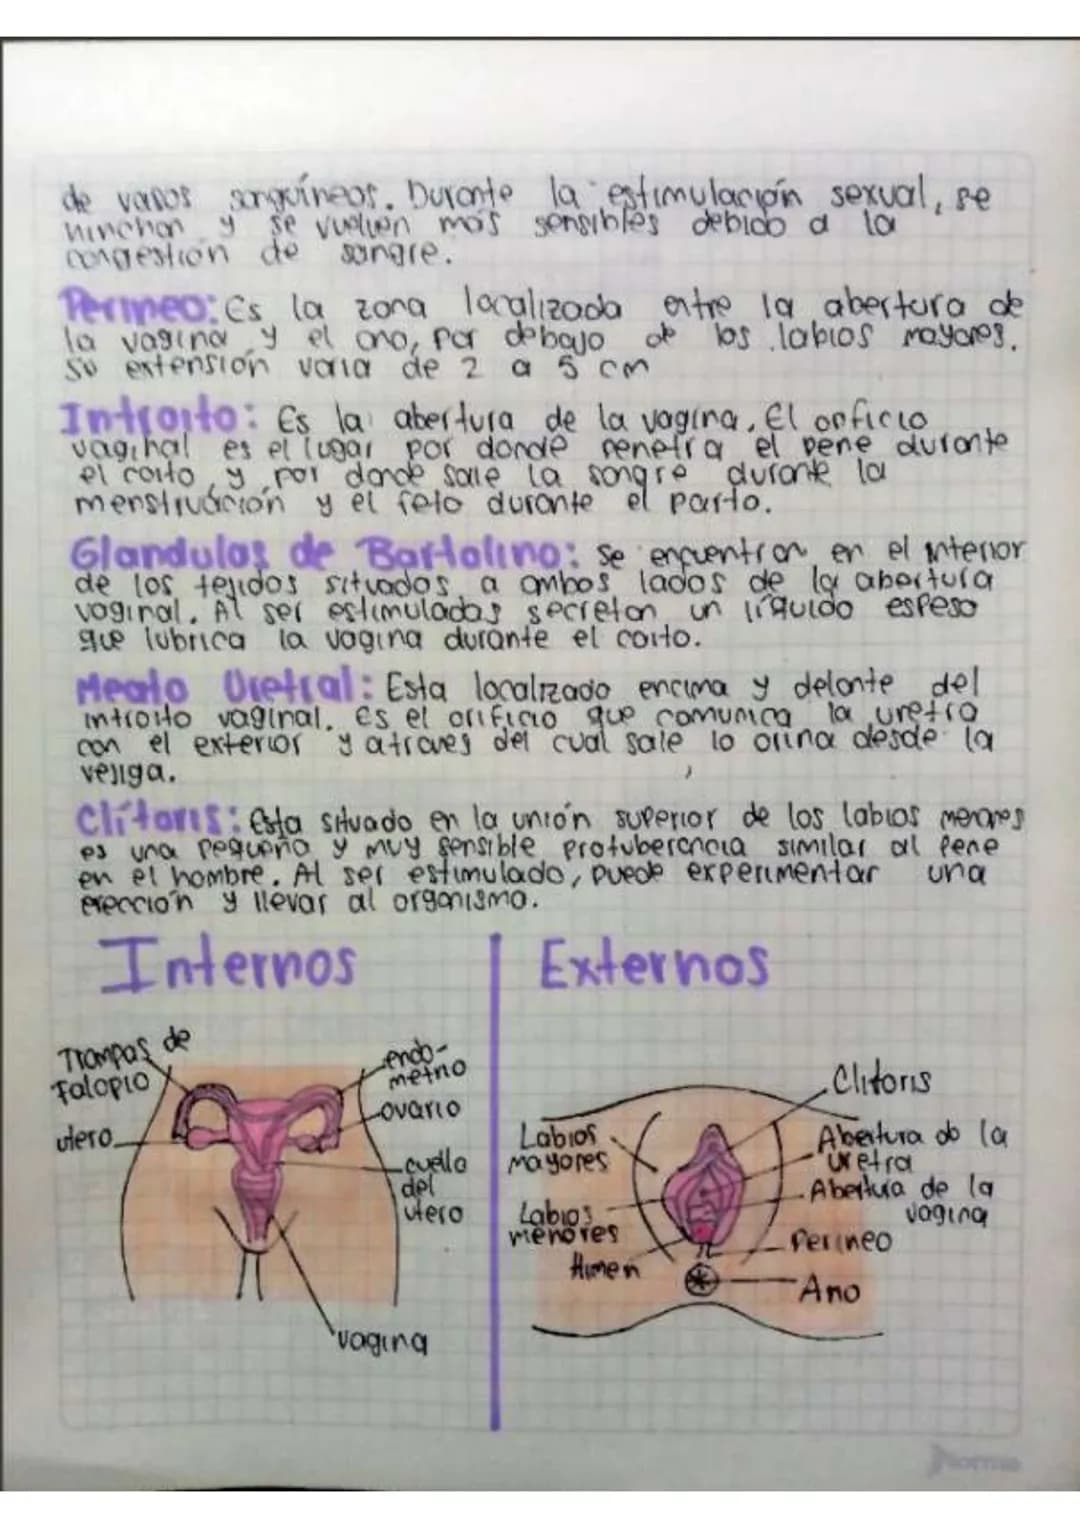 de vasos sanguíneos. Durante la estimulación sexual, se
hinchan y se vuelven más sensibles debido a la
congestión de sangre.
Perineo: Es la zona localizada entre la abertura de
la vagina y el ano, por debajo de los labios mayores.
Su extensión varia de 2 a 5 cm
Introito: Es la abertura de la vagina. El orificio
vaginal es el lugar por donde penetra el pene durante
el coito y por donde sale la sangre durante la
menstruación y el feto durante el parto.
Glandulas de Bartolino: Se encuentran en el interior
de los tejidos situados a ambos lados de la abertura
vaginal. Al ser estimuladas secretan un líquido espeso
que lubrica la vagina durante el coito.
Meato Uretral: Esta localizado encima y delante del
introito vaginal. Es el orificio que comunica la uretra
con el exterior y a traves del cual sale la orina desde la
vejiga.
Clítoris: Esta situado en la unión superior de los labios menores
es una pequeña y muy sensible protuberancia similar al pene
en el hombre. Al ser estimulado, puede experimentar una
erección y llevar al organismo.
Internos
Externos
Trompas de
Falopio
utero
endo-
metrio
ovario
cuello
del
utero
vagina
Clitoris
Labios
mayores
Abertura de la
uretra
Abertura de la
vagina
Labios
menores
Perineo
Himen
Ano
Norma